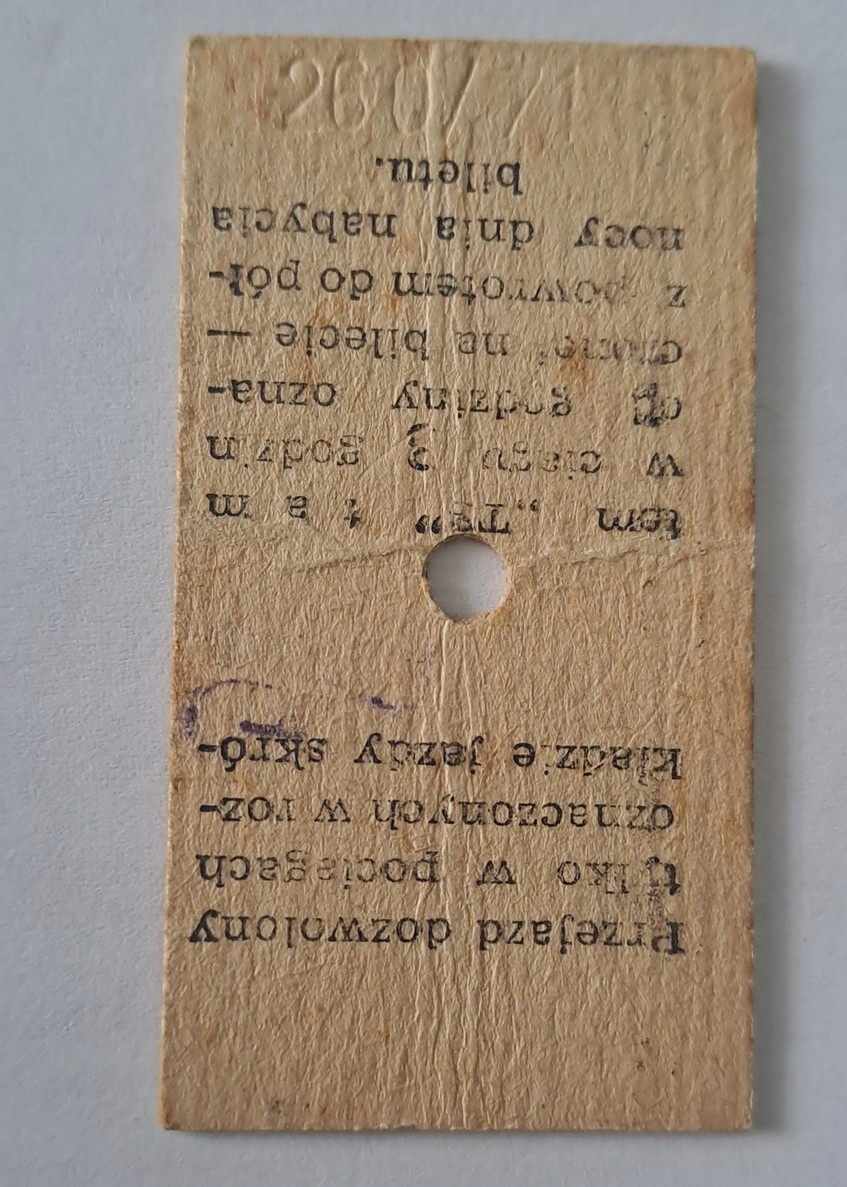 Przejazd dozwolony
tylko w pociągach
oznaczonych w roz-
kładzie jazdy skró-
tem „TS” t a m
w ciągu 3 godzin
od godziny ozna-
czonej na bilecie —
z powrotem do pół-
nocy dnia nabycia
biletu.